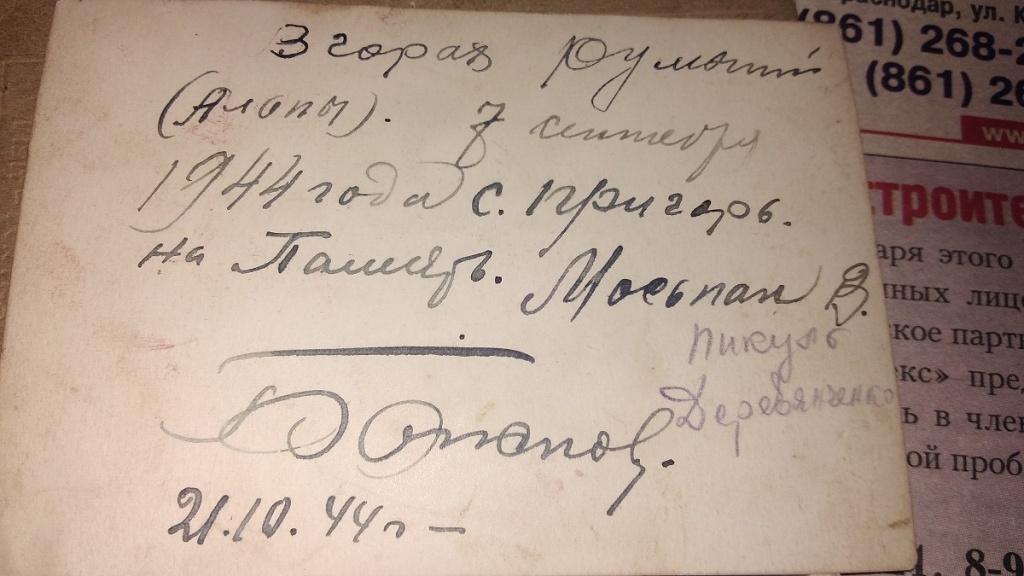 В горах Румынии
(Альпы). 7 сентября
1944 года с. Пригорь.
на Память. Мосьпан В.
Пикуль
Деревянченко
21.10.44г –
раснодар, ул. К
(861) 268-2
(861) 26
ww
строите
аря этого
нных лице
ское парти
екс» пред
ь в член
ой проб
8-9